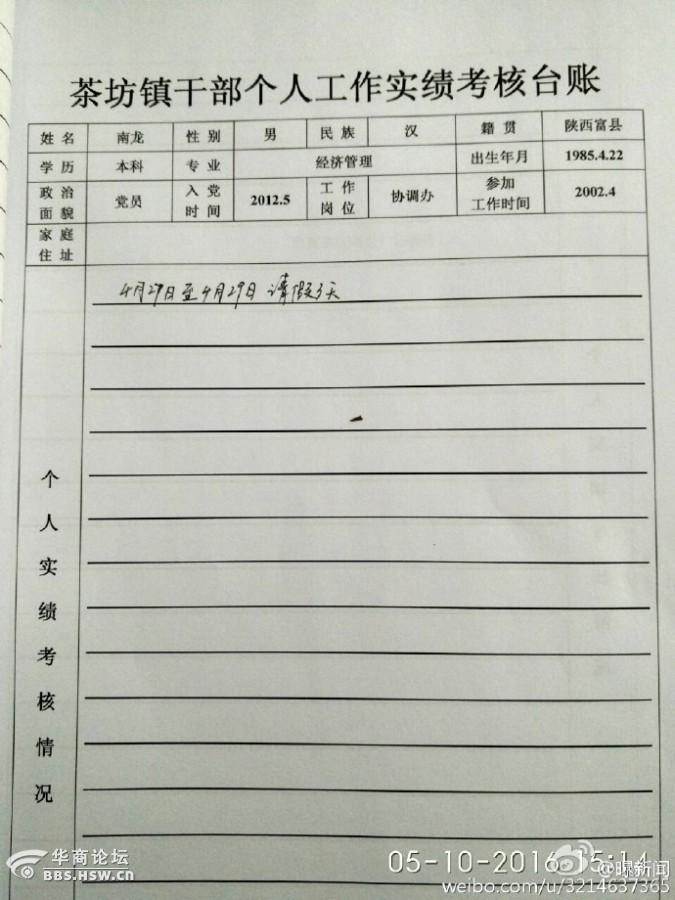 茶坊镇干部个人工作实绩考核台账
姓名 南龙 性别 男 民族 汉 籍贯 陕西富县
学历 本科 专业 经济管理 出生年月 1985.4.22
政治面貌 党员 入党时间 2012.5 工作岗位 协调办 参加工作时间 2002.4
家庭住址
4月27日至4月29日 请假3天
个人实绩考核情况
华商论坛
BBS.HSW.CN
05-10-2016 15:14
@曝新闻
weibo.com/u/3214637365